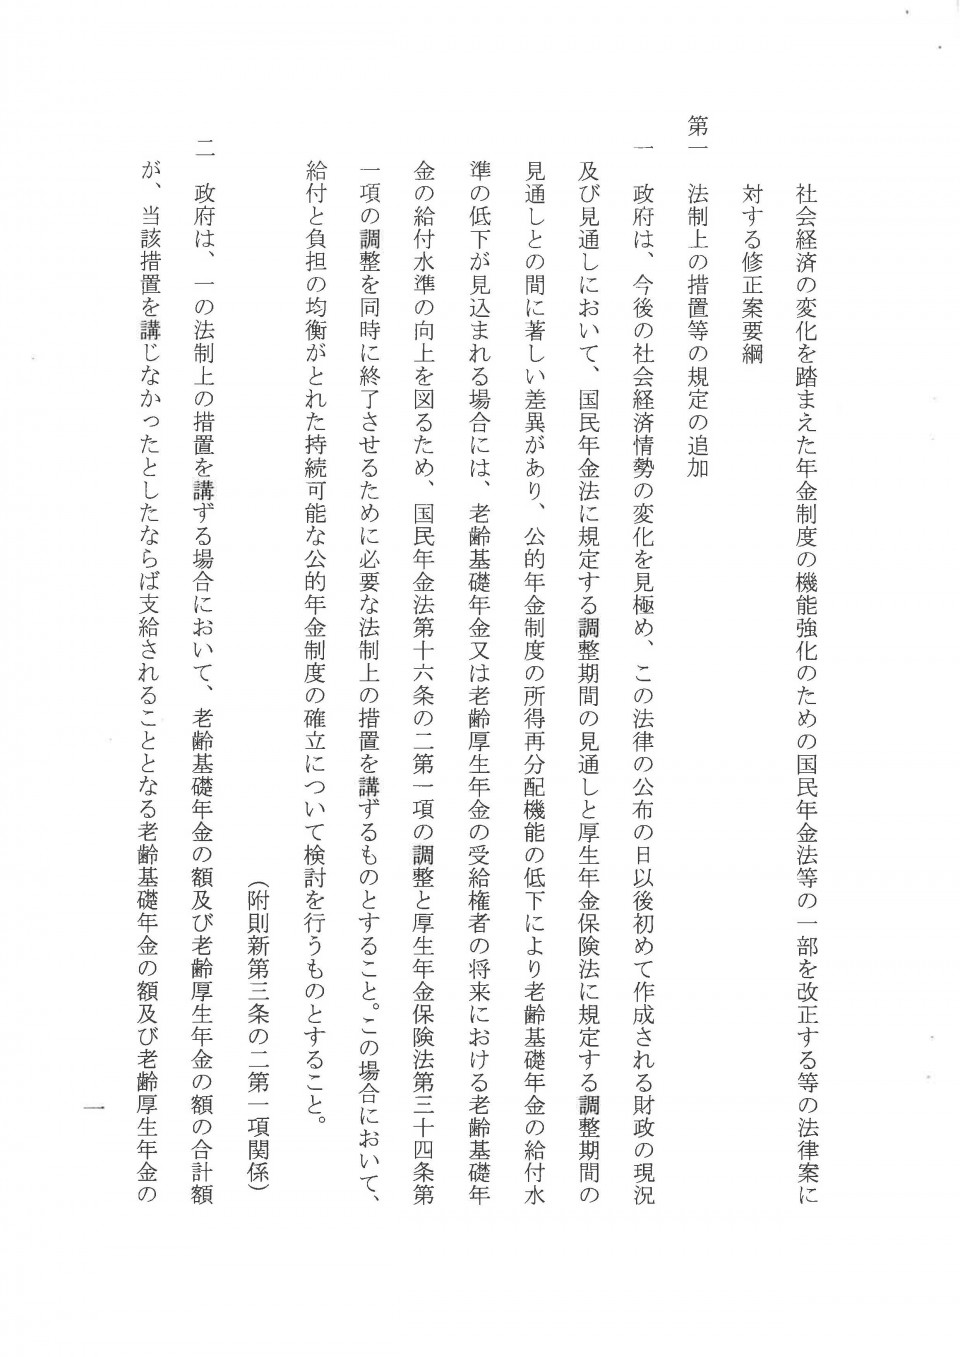 社会経済の変化を踏まえた年金制度の機能強化のための国民年金法等の一部を改正する等の法律案に
対する修正案要綱
第一　法制上の措置等の規定の追加
一　政府は、今後の社会経済情勢の変化を見極め、この法律の公布の日以後初めて作成される財政の現況
及び見通しにおいて、国民年金法に規定する調整期間の見通しと厚生年金保険法に規定する調整期間の
見通しとの間に著しい差異があり、公的年金制度の所得再分配機能の低下により老齢基礎年金の給付水
準の低下が見込まれる場合には、老齢基礎年金又は老齢厚生年金の受給権者の将来における老齢基礎年
金の給付水準の向上を図るため、国民年金法第十六条の二第一項の調整と厚生年金保険法第三十四条第
一項の調整を同時に終了させるために必要な法制上の措置を講ずるものとすること。この場合において、
給付と負担の均衡がとれた持続可能な公的年金制度の確立について検討を行うものとすること。
（附則新第三条の二第一項関係）
二　政府は、一の法制上の措置を講ずる場合において、老齢基礎年金の額及び老齢厚生年金の額の合計額
が、当該措置を講じなかったとしたならば支給されることとなる老齢基礎年金の額及び老齢厚生年金の
一